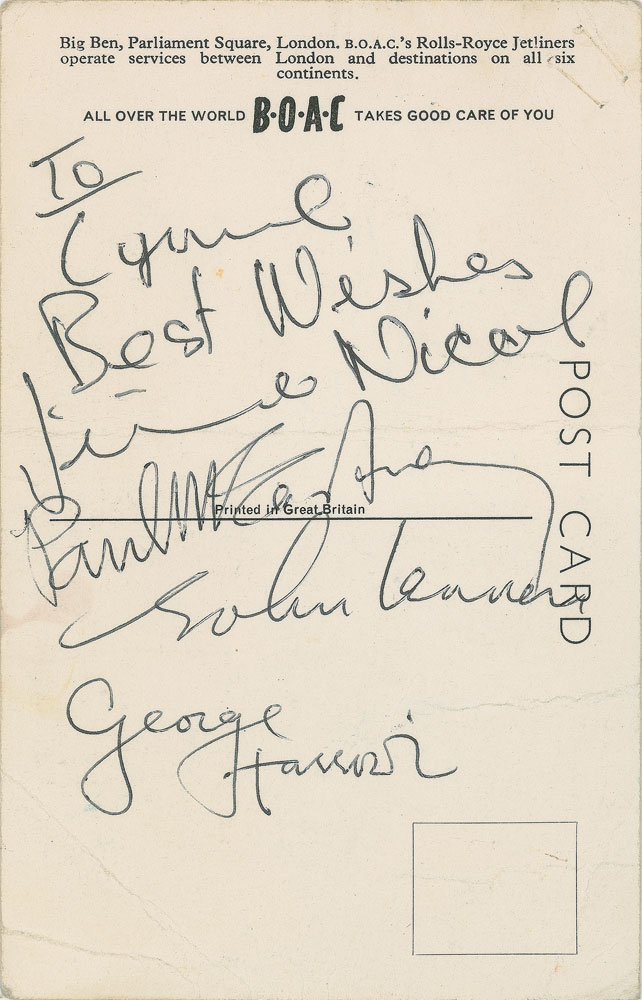 Big Ben, Parliament Square, London. B.O.A.C.'s Rolls-Royce Jetliners
operate services between London and destinations on all six
continents.
ALL OVER THE WORLD B·O·A·C TAKES GOOD CARE OF YOU
To
Best Wishes
Nicol
Paul McCartney
Printed in Great Britain
POST CARD
John Lennon
George
Harrison